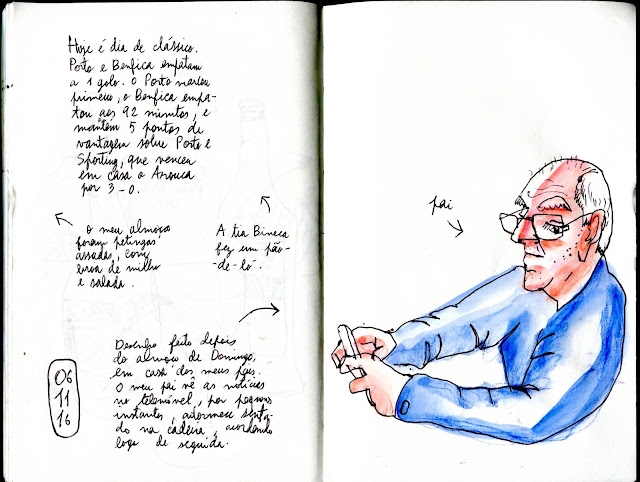 Hoje é dia de clássico.
Porto e Benfica empatam
a 1 golo. O Porto marcou
primeiro, o Benfica empa-
tou aos 92 minutos, e
mantém 5 pontos de
vantagem sobre Porto e
Sporting, que venceu
em casa o Arouca
por 3-0.
O meu almoço
foram petingas
assadas, com
broa de milho
e salada.
A tia Bineca
fez um pão-
-de-ló.
Desenho feito depois
do almoço de Domingo,
em casa dos meus pais.
O meu pai vê as notícias
no telemóvel, por pequenos
instantes, adormece senta-
do na cadeira, acordando
logo de seguida.
06
11
16
pai